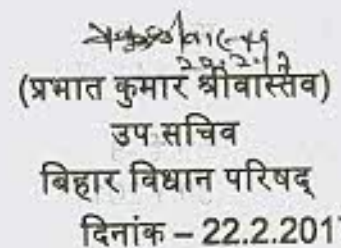 (प्रभात कुमार श्रीवास्तव)
उप सचिव
बिहार विधान परिषद्
दिनांक – 22.2.201